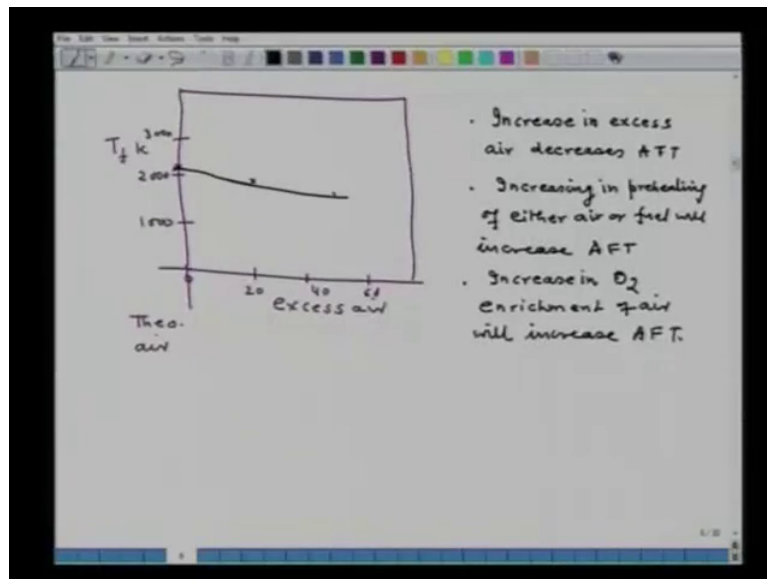 File Edit View Insert Actions Tools Help
3000
T_f K
2000
1000
0 20 40 60
excess air
Theo.
air
· Increase in excess
air decreases AFT
· Increasing in preheating
of either air or fuel will
increase AFT
· Increase in O2
enrichment of air
will increase AFT.